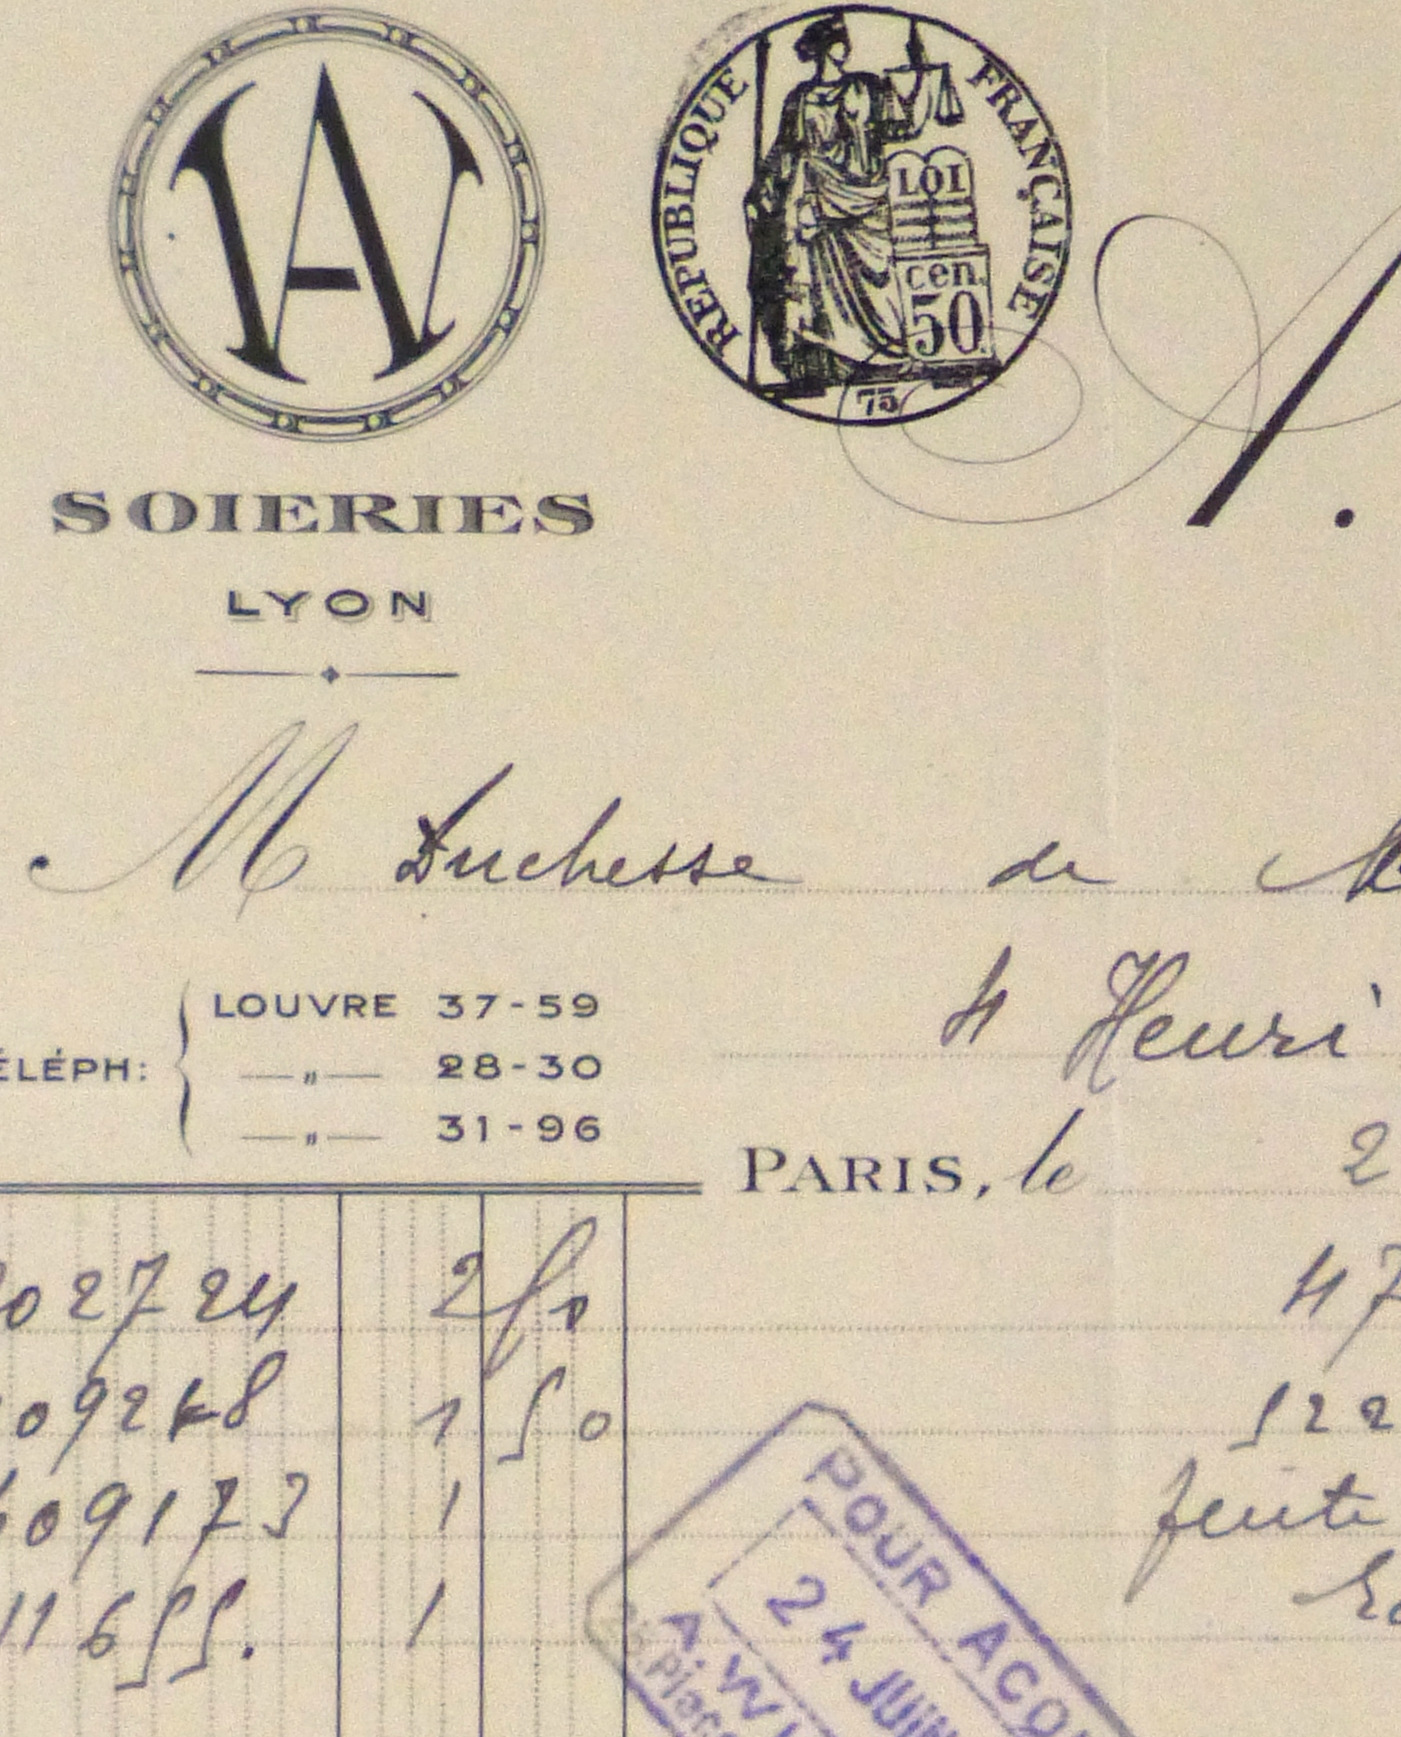 WA
RÉPUBLIQUE FRANÇAISE
LOI
cen.
50
75
A.
SOIERIES
LYON
M Duchesse de
4 Henri
ÉLÉPH: LOUVRE 37-59
—„— 28-30
—„— 31-96
PARIS, le 2
02724 2 50 47
1 50 522
09173 1
11655. 1
POUR ACO
24 JUIN
A. W
Place